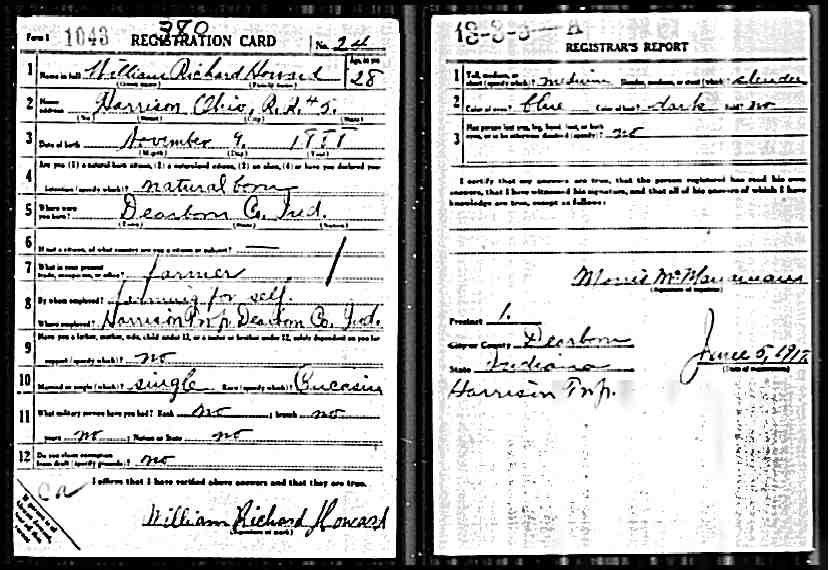 380
Form 1 1043 REGISTRATION CARD No. 24
1 Name in full William Richard Howard Age, in yrs 28
(Given name) (Family name)
2 Home address Harrison, Ohio, R.R. #5.
(No.) (Street) (City) (State)
3 Date of birth November 9, 1888
(Month) (Day) (Year)
4 Are you (1) a natural born citizen, (2) a naturalized citizen, (3) an alien, (4) or have you declared your
intention (specify which)? natural born
5 Where were you born? Dearborn Co. Ind.
(Town) (State) (Nation)
6 If not a citizen, of what country are you a citizen or subject? —
7 What is your present trade, occupation, or office? farmer
8 By whom employed? farming for self.
Where employed? Harrison Twp Dearborn Co. Ind.
9 Have you a father, mother, wife, child under 12, or a sister or brother under 12, solely dependent on you for
support (specify which)? no
10 Married or single (which)? single Race (specify which)?
11 What military service have you had? Rank no ; branch no
years no ; Nation or State no
12 Do you claim exemption from draft (specify grounds)? no
I affirm that I have verified above answers and that they are true.
William Richard Howard
(Signature or mark)
REGISTRAR'S REPORT
1 Tall, medium, or short (specify which)? medium Slender, medium, or stout (which)? slender
2 Color of eyes? blue Color of hair? dark Bald? no
3 Has person lost arm, leg, hand, foot, or both eyes, or is he otherwise disabled (specify)? no
I certify that my answers are true, that the person registered has read his own
answers, that I have witnessed his signature, and that all of his answers of which I have
knowledge are true, except as follows:
(Signature of registrar)
Precinct 1.
City or County Dearborn
State Indiana June 5, 1917
(Date of registration)
Harrison Twp.